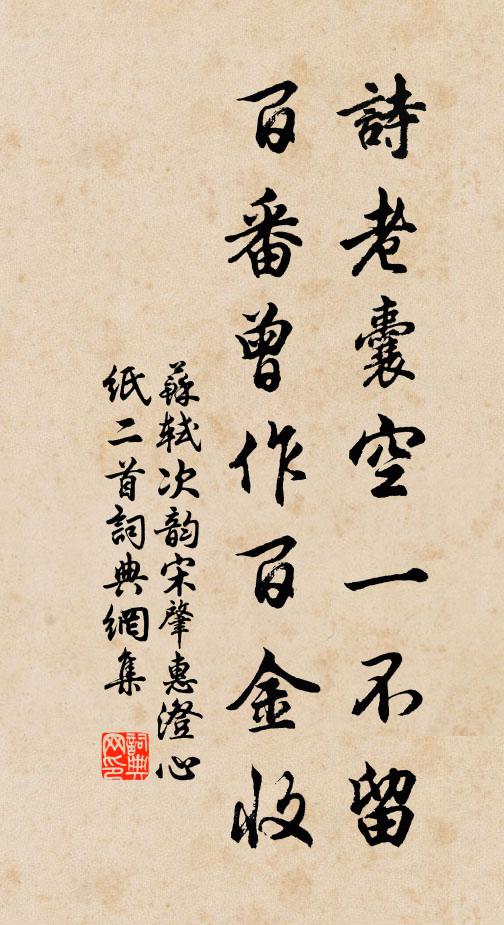 詩老囊空一不留
百番曾作百金收
蘇軾次韵宋肇惠澄心
紙二首詞典網集
詞典网印